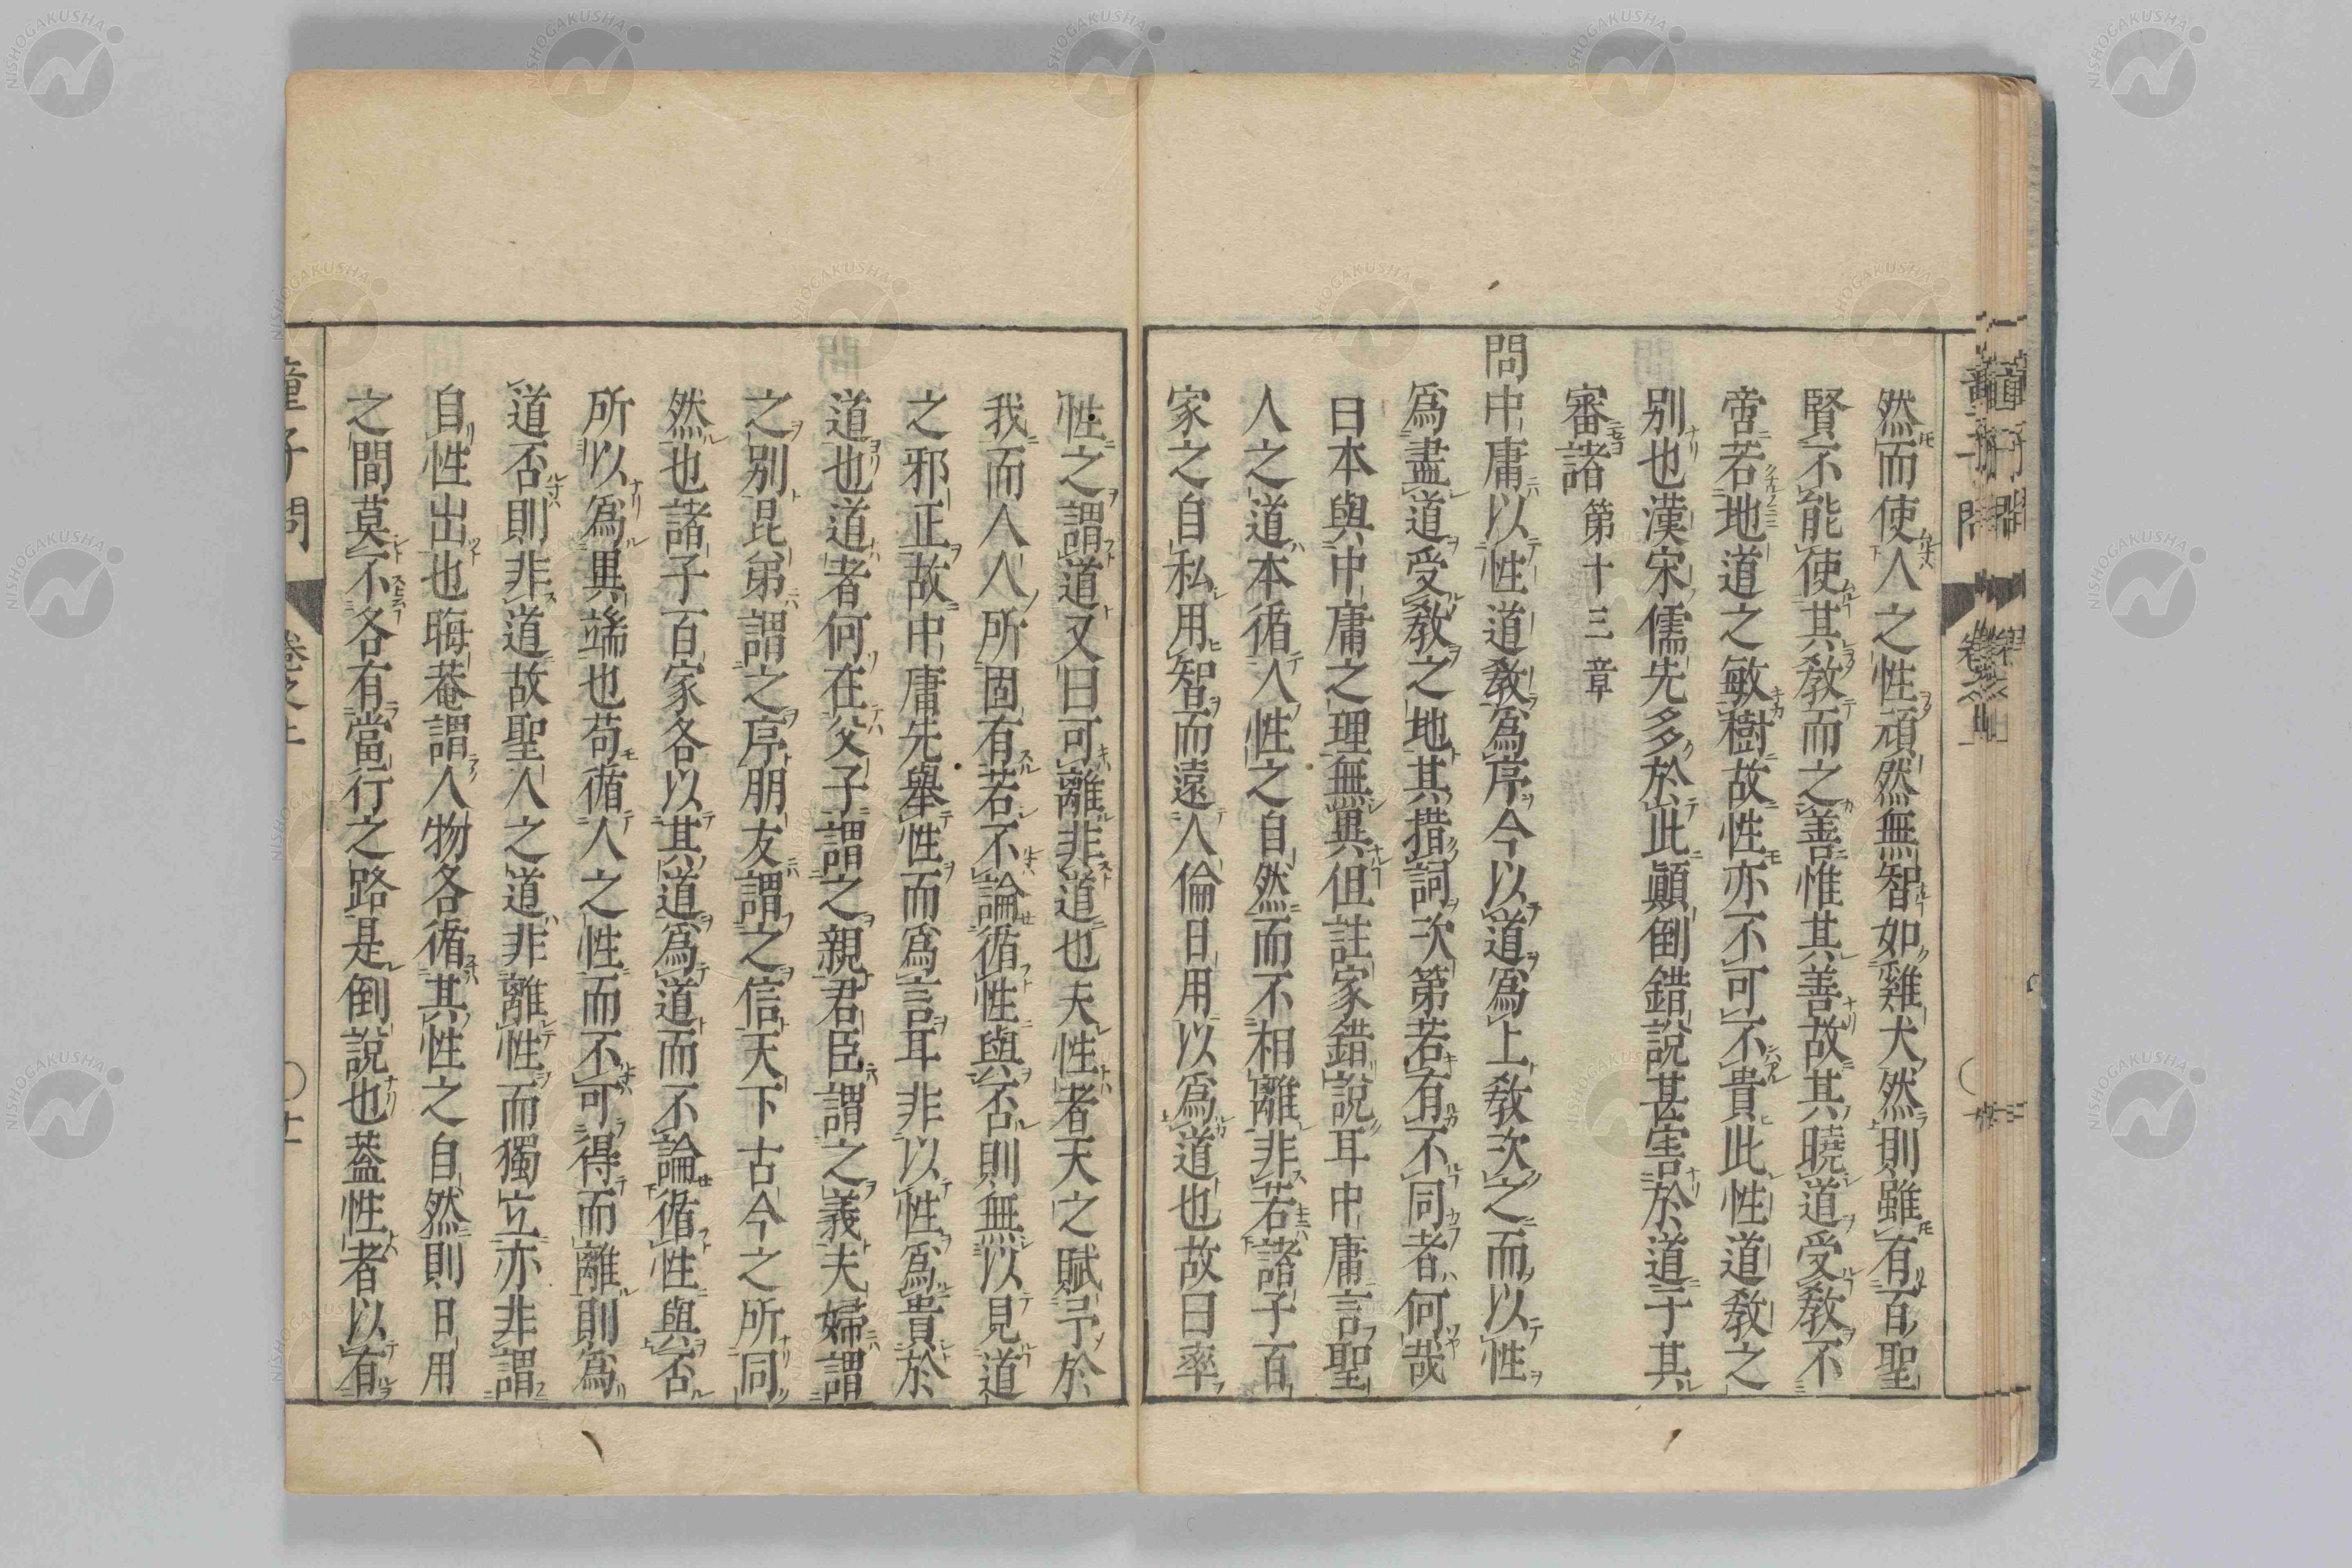 然而使人之性頑然無智如雞犬然則雖有百聖
賢不能使其教而之善惟其善故其曉道受教不
啻若地道之敏樹故性亦不可不貴此性道教之
別也漢宋儒先多於此顚倒錯說甚害於道于其
審諸 第十三章
問中庸以性道教爲序今以道爲上教次之而以性
爲盡道受教之地其措詞次第若有不同者何哉
曰本與中庸之理無異但註家錯說耳中庸言聖
人之道本循人性之自然而不相離非若諸子百
家之自私用智而遠人倫日用以爲道也故曰率
性之謂道又曰可離非道也夫性者天之賦予於
我而人人所固有若不論循性與否則無以見道
之邪正故中庸先舉性而爲言耳非以性爲貴於
道也道者何在父子謂之親君臣謂之義夫婦謂
之別昆弟謂之序朋友謂之信天下古今之所同
然也諸子百家各以其道爲道而不論循性與否
所以爲異端也苟循人之性而不可得而離則爲
道否則非道故聖人之道非離性而獨立亦非謂
自性出也晦菴謂人物各循其性之自然則日用
之間莫不各有當行之路是倒說也蓋性者以有
童子問 卷之上